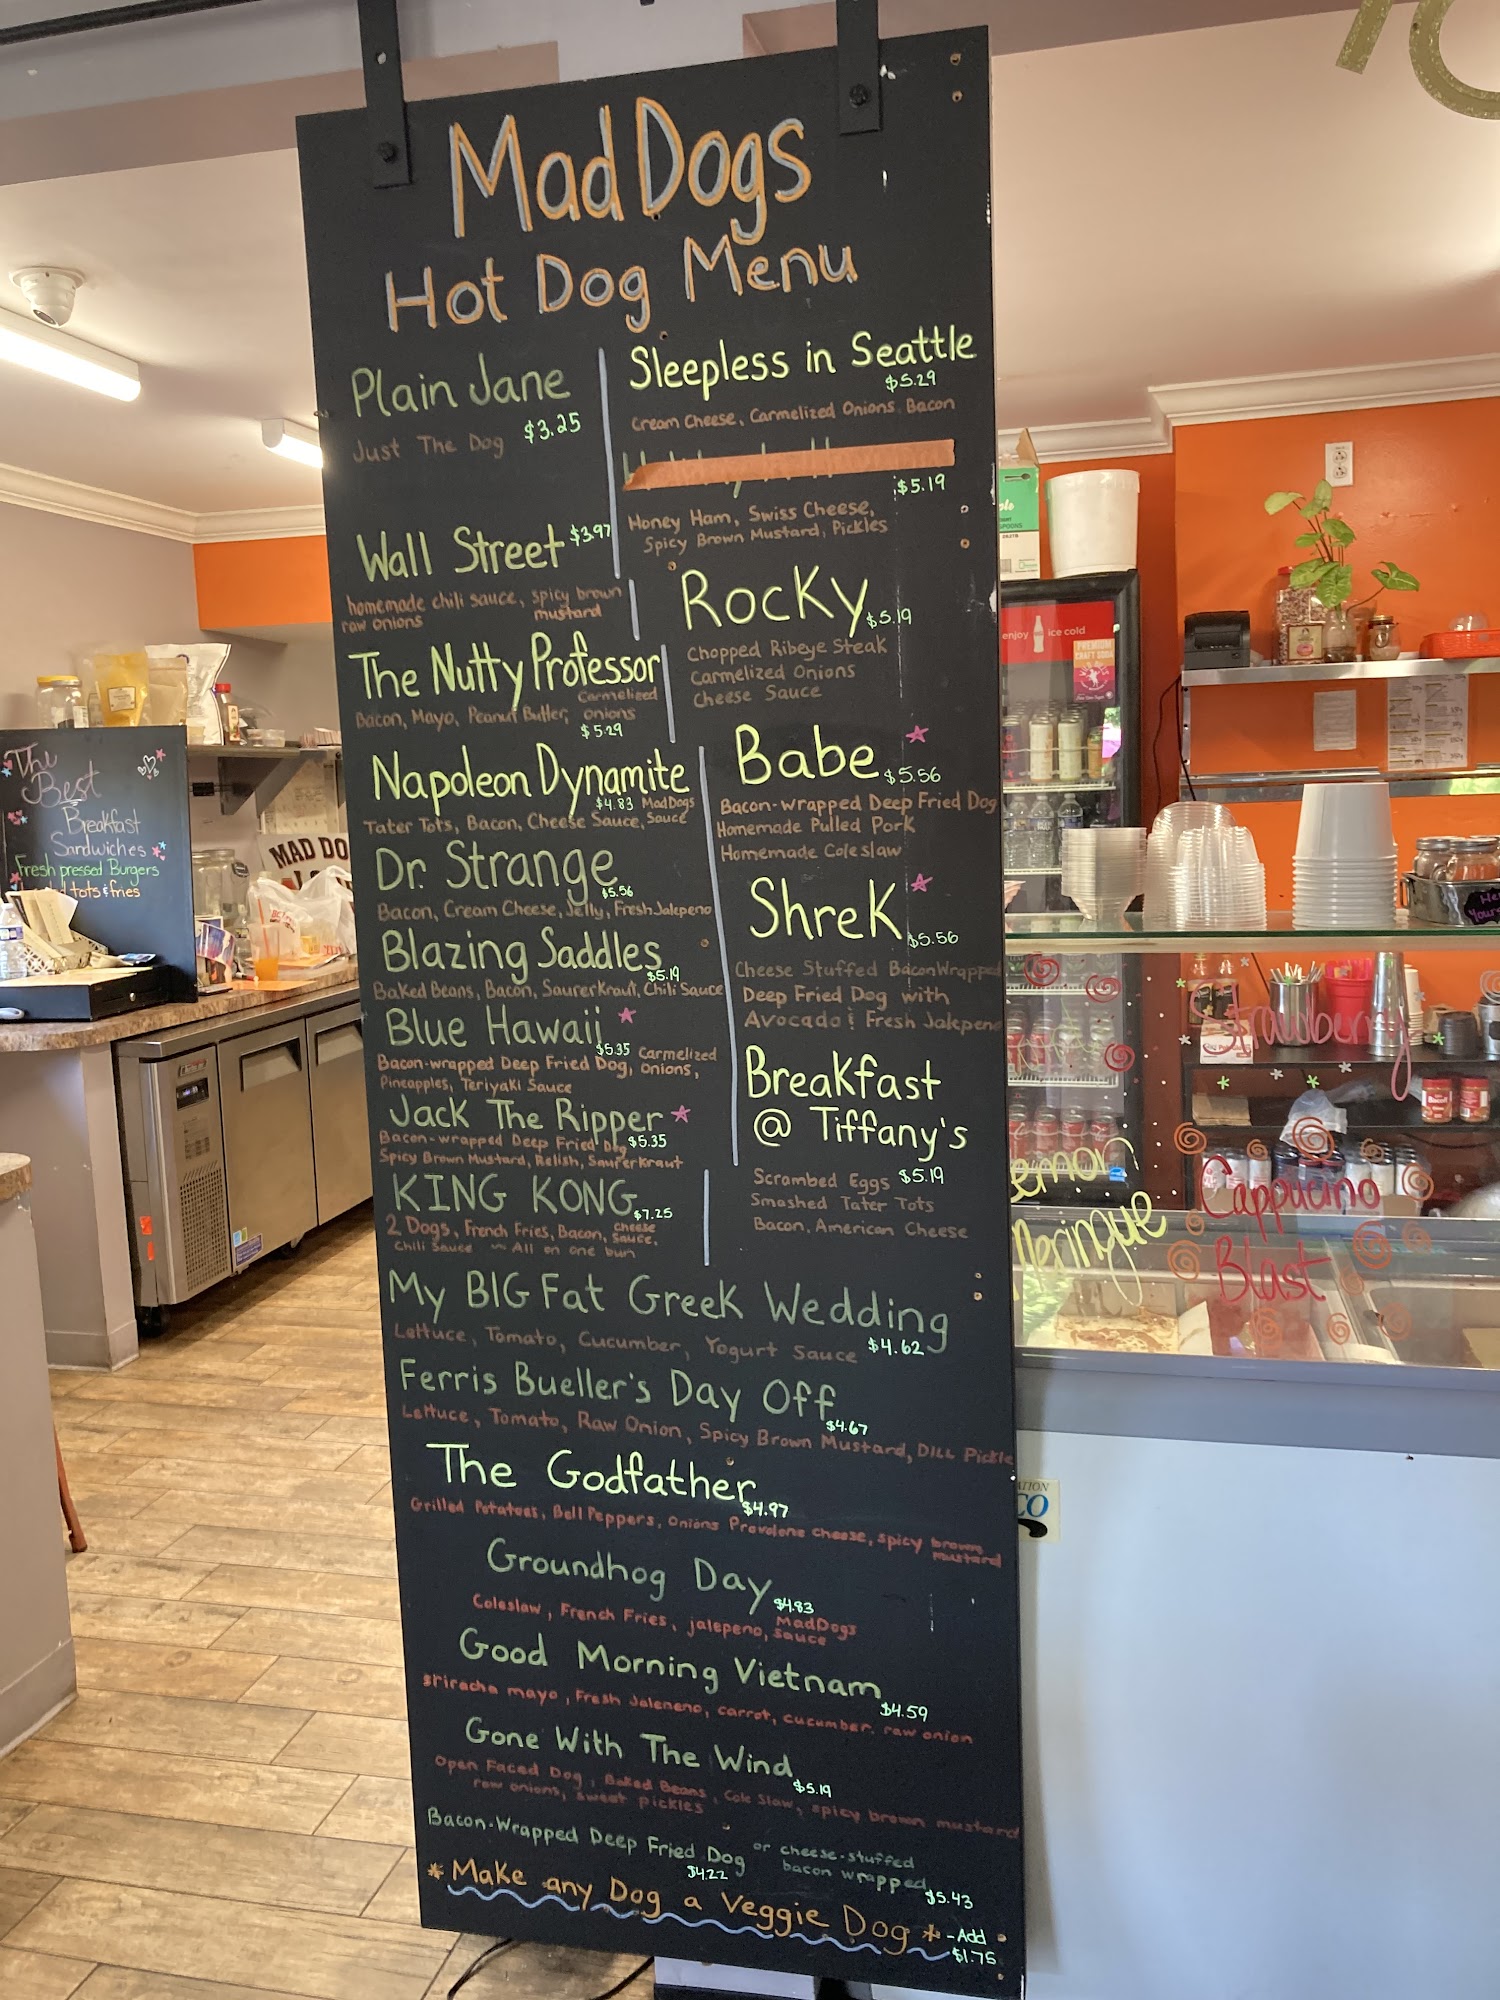 Mad Dogs
Hot Dog Menu
Plain Jane
Just The Dog $3.25
Wall Street $3.97
homemade chili sauce, spicy brown
raw onions mustard
The Nutty Professor
Carmelized
Bacon, Mayo, Peanut Butter, onions
$5.29
Napoleon Dynamite
$4.83 MadDogs
Tater Tots, Bacon, Cheese Sauce, Sauce
Dr. Strange
$5.56
Bacon, Cream Cheese, Jelly, Fresh Jalepeno
Blazing Saddles
$5.19
Baked Beans, Bacon, Saurerkraut, Chili Sauce
Blue Hawaii
$5.35 Carmelized
Bacon-wrapped Deep Fried Dog, onions,
Pineapples, Teriyaki Sauce
Jack The Ripper
Bacon-wrapped Deep Fried Dog $5.35
Spicy Brown Mustard, Relish, Saurerkraut
KING KONG
$7.25
2 Dogs, French Fries, Bacon, Cheese Sauce,
Chili Sauce — All on one bun
Sleepless in Seattle
$5.29
Cream Cheese, Carmelized Onions, Bacon
$5.19
Honey Ham, Swiss Cheese,
Spicy Brown Mustard, Pickles
Rocky $5.19
Chopped Ribeye Steak
Carmelized Onions
Cheese Sauce
Babe $5.56
Bacon-wrapped Deep Fried Dog
Homemade Pulled Pork
Homemade Coleslaw
Shrek $5.56
Cheese Stuffed Bacon Wrapped
Deep Fried Dog with
Avocado & Fresh Jalepeno
Breakfast
@ Tiffany's
Scrambed Eggs $5.19
Smashed Tater Tots
Bacon, American Cheese
My BIG Fat Greek Wedding
Lettuce, Tomato, Cucumber, Yogurt Sauce $4.62
Ferris Bueller's Day Off
$4.67
Lettuce, Tomato, Raw Onion, Spicy Brown Mustard, Dill Pickle
The Godfather
$4.97
Grilled Potatoes, Bell Peppers, Onions Provolone cheese, spicy brown
mustard
Groundhog Day
$4.83
Coleslaw, French Fries, jalepeno, MadDogs
sauce
Good Morning Vietnam
$4.59
sriracha mayo, Fresh Jaleneno, carrot, cucumber, raw onion
Gone With The Wind
$5.19
Open Faced Dog, Baked Beans, Cole Slaw, spicy brown mustard
raw onions, sweet pickles
Bacon-Wrapped Deep Fried Dog or cheese-stuffed
bacon wrapped
$4.22
$5.43
* Make any Dog a Veggie Dog * - Add
$1.75
The
Best
Breakfast
Sandwiches
Fresh pressed Burgers
tots & fries
MAD DO
enjoy ice cold
PREMIUM
CRAFT SODA
Strawberry
Lemon
Meringue
Cappucino
Blast